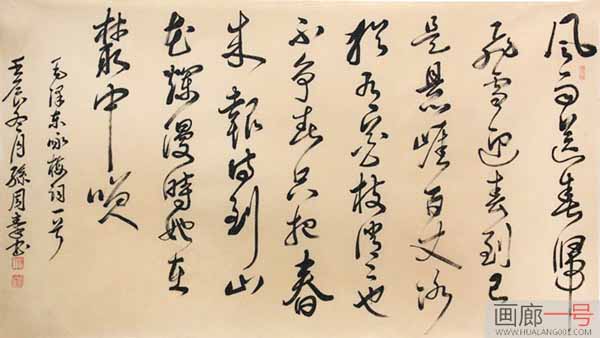 風雨送春歸
飛雪迎春到已
是悬崖百丈冰
猶有花枝俏々也
不争春只把春
来報待到山
花爛漫時她在
叢中咲
毛泽东咏梅词一首
壬辰冬月孫周書
画廊一号
WWW.HUALANG001.COM